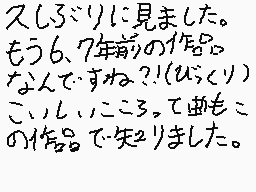 久しぶりに見ました。
もう6、7年前の作品
なんですね?!(びっくり)
こいしいこころって曲もこ
の作品で知りました。